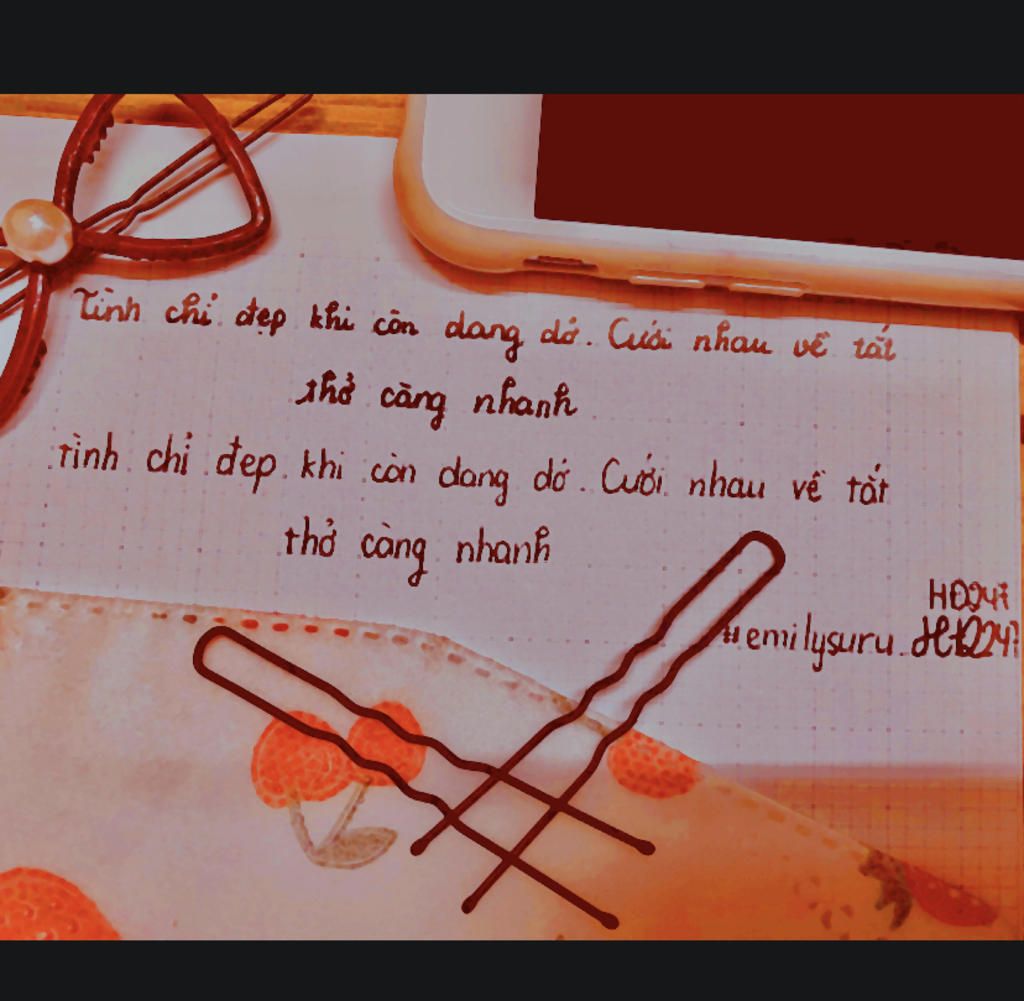 Tình chỉ đẹp khi còn dang dở. Cưới nhau về tắt
thở càng nhanh
tình chỉ đẹp khi còn dang dở. Cưới nhau về tắt
thở càng nhanh
HD247
#emilysuru.HD247